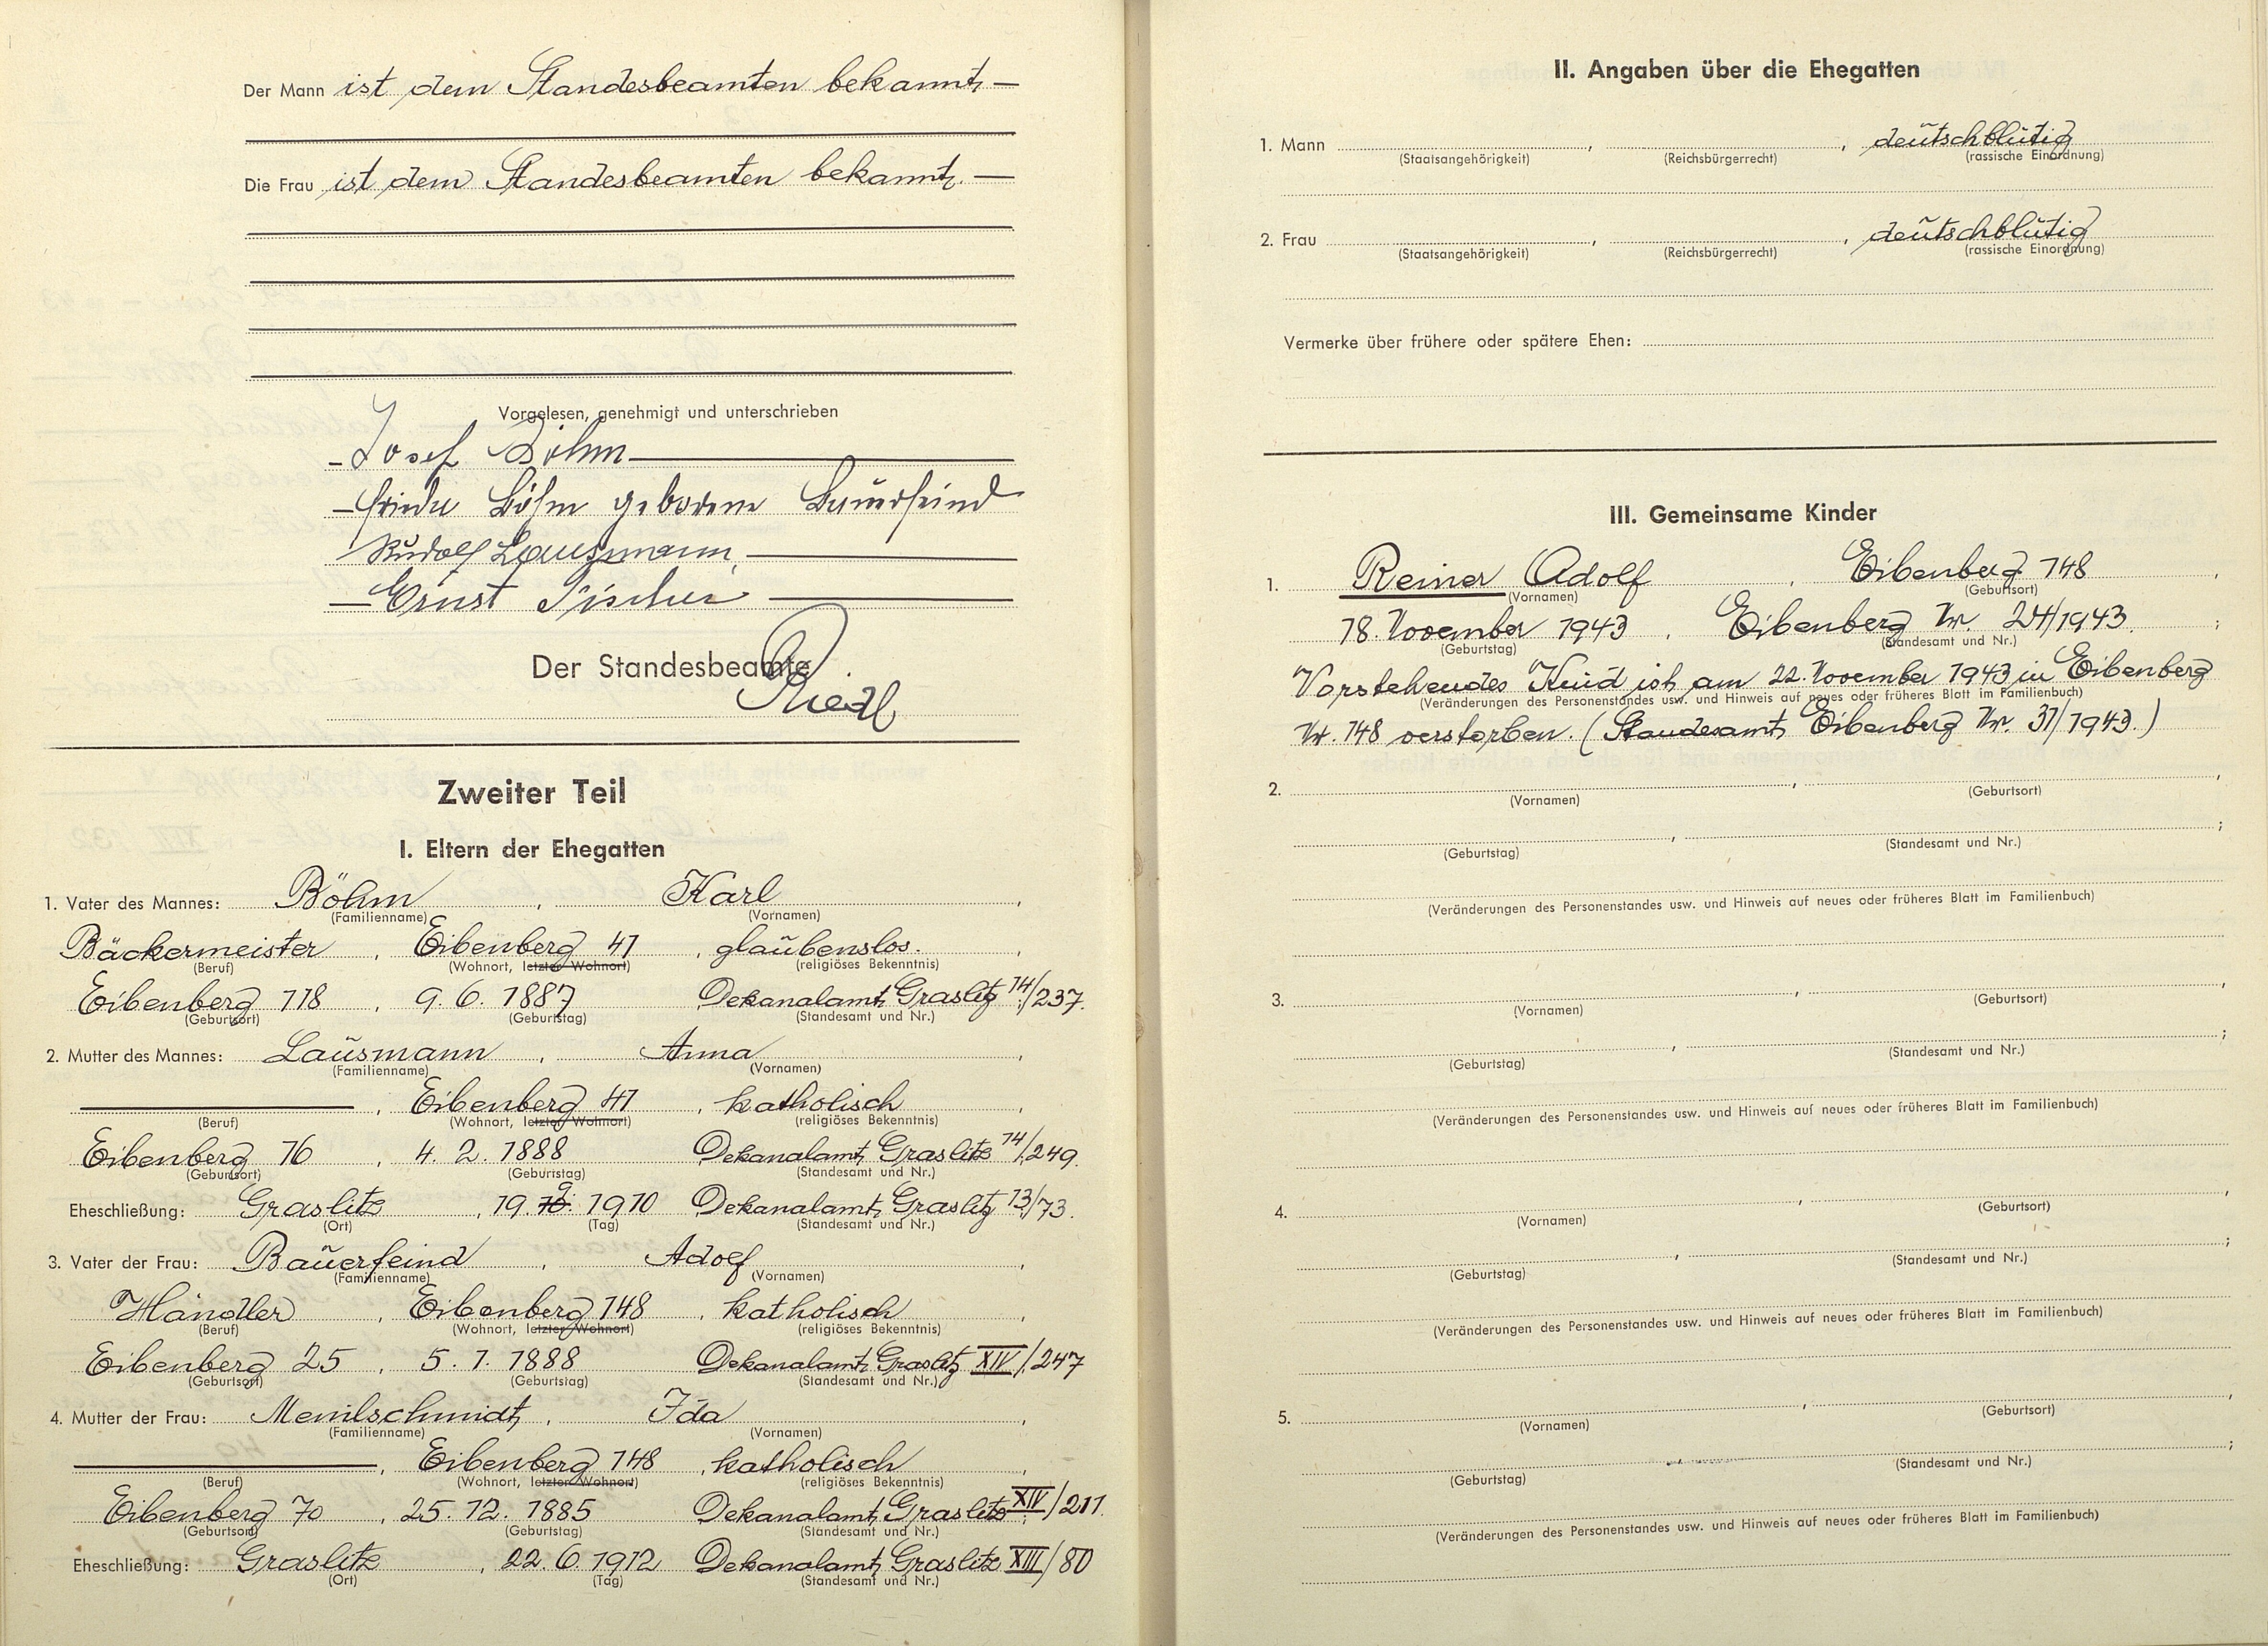 Der Mann ist dem Standesbeamten bekannt, —
Die Frau ist dem Standesbeamten bekannt. —
Vorgelesen, genehmigt und unterschrieben
Josef Böhm
Friede Böhm geborene Bauerfeind
Rudolf Lausmann,
Ernst Fischer
Der Standesbeamte
Riedl
Zweiter Teil
I. Eltern der Ehegatten
1. Vater des Mannes: Böhm, Karl,
(Familienname) (Vornamen)
Bäckermeister, Eibenberg 41, glaubenslos.,
(Beruf) (Wohnort, letzter Wohnort) (religiöses Bekenntnis)
Eibenberg 118, 9. 6. 1887 Dekanalamt Graslitz 14/237.
(Geburtsort) (Geburtstag) (Standesamt und Nr.)
2. Mutter des Mannes: Lausmann, Anna,
(Familienname) (Vornamen)
, Eibenberg 41, katholisch,
(Beruf) (Wohnort, letzter Wohnort) (religiöses Bekenntnis)
Eibenberg 16, 4. 2. 1888 Dekanalamt Graslitz 14/249.
(Geburtsort) (Geburtstag) (Standesamt und Nr.)
Eheschließung: Graslitz, 19. 9. 1910 Dekanalamt Graslitz 13/73.
(Ort) (Tag) (Standesamt und Nr.)
3. Vater der Frau: Bauerfeind, Adolf,
(Familienname) (Vornamen)
Händler, Eibenberg 148, katholisch,
(Beruf) (Wohnort, letzter Wohnort) (religiöses Bekenntnis)
Eibenberg 25, 5. 1. 1888 Dekanalamt Graslitz XIV/247
(Geburtsort) (Geburtstag) (Standesamt und Nr.)
4. Mutter der Frau: Meinlschmidt, Ida,
(Familienname) (Vornamen)
, Eibenberg 148, katholisch,
(Beruf) (Wohnort, letzter Wohnort) (religiöses Bekenntnis)
Eibenberg 70, 25. 12. 1885 Dekanalamt Graslitz XIV/211.
(Geburtsort) (Geburtstag) (Standesamt und Nr.)
Eheschließung: Graslitz, 22. 6. 1912 Dekanalamt Graslitz XIII/80
(Ort) (Tag) (Standesamt und Nr.)
II. Angaben über die Ehegatten
1. Mann , , deutschblütig
(Staatsangehörigkeit) (Reichsbürgerrecht) (rassische Einordnung)
2. Frau , , deutschblütig
(Staatsangehörigkeit) (Reichsbürgerrecht) (rassische Einordnung)
Vermerke über frühere oder spätere Ehen:
III. Gemeinsame Kinder
1. Reiner Adolf, Eibenberg 148,
(Vornamen) (Geburtsort)
18. November 1943, Eibenberg Nr. 24/1943.;
(Geburtstag) (Standesamt und Nr.)
Vorstehendes Kind ist am 22. November 1943 in Eibenberg
(Veränderungen des Personenstandes usw. und Hinweis auf neues oder früheres Blatt im Familienbuch)
Nr. 148 verstorben. (Standesamt Eibenberg Nr. 31/1943.)
2. , ,
(Vornamen) (Geburtsort)
, ;
(Geburtstag) (Standesamt und Nr.)
(Veränderungen des Personenstandes usw. und Hinweis auf neues oder früheres Blatt im Familienbuch)
3. , ,
(Vornamen) (Geburtsort)
, ;
(Geburtstag) (Standesamt und Nr.)
(Veränderungen des Personenstandes usw. und Hinweis auf neues oder früheres Blatt im Familienbuch)
4. , ,
(Vornamen) (Geburtsort)
, ;
(Geburtstag) (Standesamt und Nr.)
(Veränderungen des Personenstandes usw. und Hinweis auf neues oder früheres Blatt im Familienbuch)
5. , ,
(Vornamen) (Geburtsort)
;
(Geburtstag) (Standesamt und Nr.)
(Veränderungen des Personenstandes usw. und Hinweis auf neues oder früheres Blatt im Familienbuch)